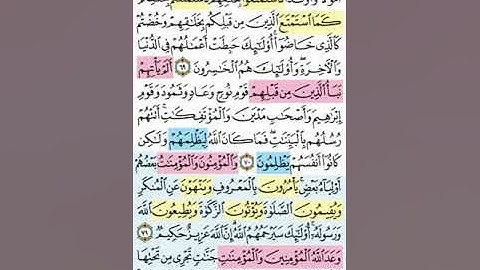 كَمَا ٱسْتَمْتَعَ ٱلَّذِينَ مِن قَبْلِكُم بِخَلَٰقِهِمْ وَخُضْتُمْ
كَٱلَّذِى خَاضُوٓا۟ أُو۟لَٰٓئِكَ حَبِطَتْ أَعْمَٰلُهُمْ فِى ٱلدُّنْيَا
وَٱلْءَاخِرَةِ وَأُو۟لَٰٓئِكَ هُمُ ٱلْخَٰسِرُونَ ٦٩ أَلَمْ يَأْتِهِمْ
نَبَأُ ٱلَّذِينَ مِن قَبْلِهِمْ قَوْمِ نُوحٍ وَعَادٍ وَثَمُودَ وَقَوْمِ
إِبْرَٰهِيمَ وَأَصْحَٰبِ مَدْيَنَ وَٱلْمُؤْتَفِكَٰتِ أَتَتْهُمْ
رُسُلُهُم بِٱلْبَيِّنَٰتِ فَمَا كَانَ ٱللَّهُ لِيَظْلِمَهُمْ وَلَٰكِن
كَانُوٓا۟ أَنفُسَهُمْ يَظْلِمُونَ ٧٠ وَٱلْمُؤْمِنُونَ وَٱلْمُؤْمِنَٰتُ بَعْضُهُمْ
أَوْلِيَآءُ بَعْضٍ يَأْمُرُونَ بِٱلْمَعْرُوفِ وَيَنْهَوْنَ عَنِ ٱلْمُنكَرِ
وَيُقِيمُونَ ٱلصَّلَوٰةَ وَيُؤْتُونَ ٱلزَّكَوٰةَ وَيُطِيعُونَ ٱللَّهَ
وَرَسُولَهُۥٓ أُو۟لَٰٓئِكَ سَيَرْحَمُهُمُ ٱللَّهُ إِنَّ ٱللَّهَ عَزِيزٌ حَكِيمٌ ٧١
وَعَدَ ٱللَّهُ ٱلْمُؤْمِنِينَ وَٱلْمُؤْمِنَٰتِ جَنَّٰتٍ تَجْرِى مِن تَحْتِهَا